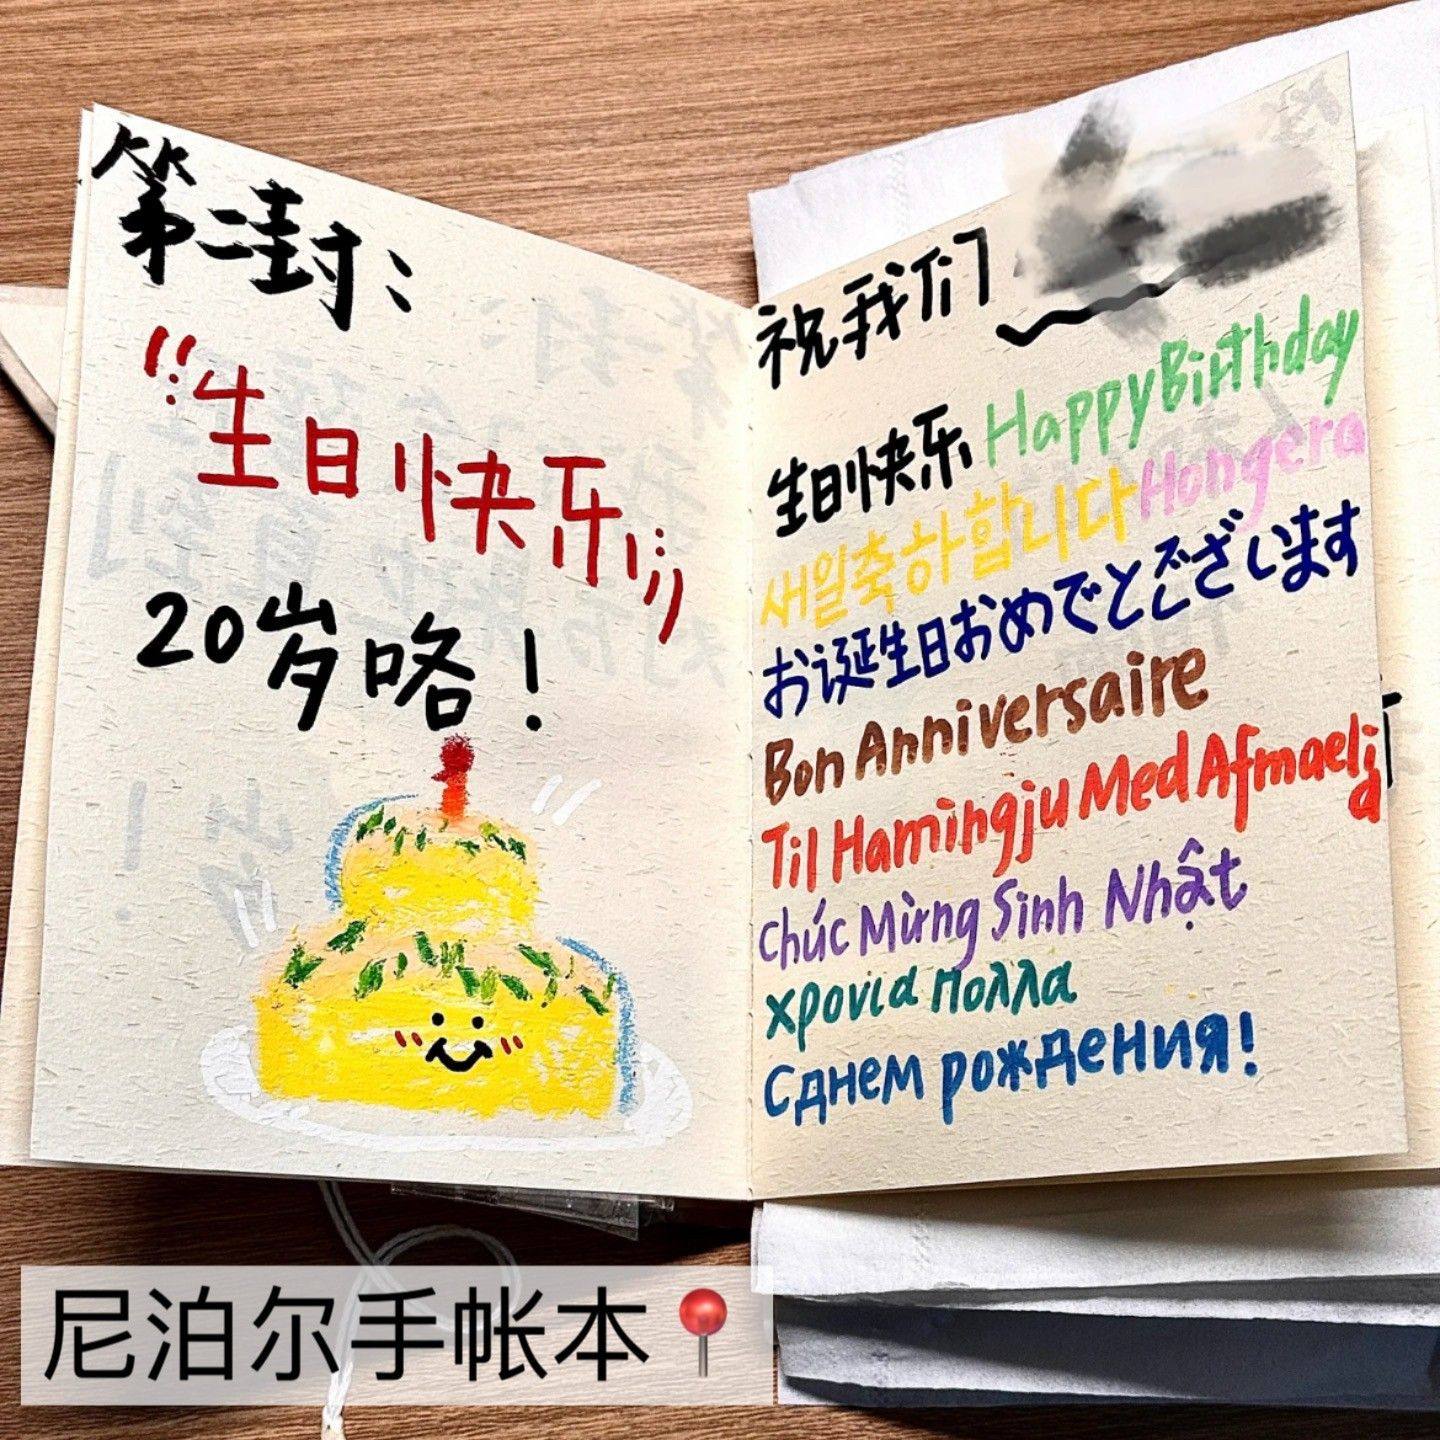 第二封：
“生日快乐”
20岁咯！
祝我们
生日快乐 Happy Birthday
새일축하합니다 Hongera
お诞生日おめでとございます
Bon Anniversaire
Til Hamingju Med Afmaelid
Chúc Mừng Sinh Nhật
χρονια πολλα
С днем рождения!
尼泊尔手帐本📍